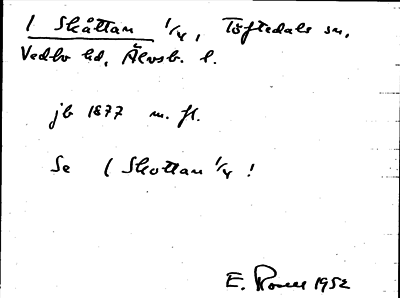 / Skåttan 1/4, Töftedals sn,
Vedbo hd, Älvsb. l.
jb 1877 m. fl.
Se / Skottan 1/4 !
E. 1952